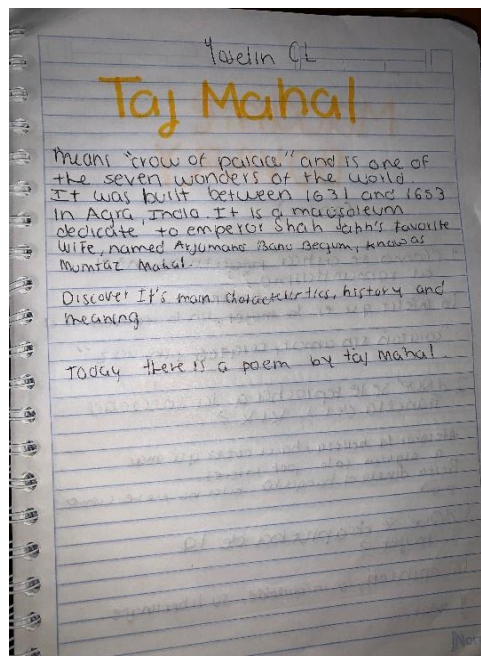 Yoselin CL
Taj Mahal
Means "crow of palace" and is one of
the seven wonders of the world.
It was built between 1631 and 1653
in Agra, India. It is a mausoleum
dedicate to emperor Shah Jahn's favorite
wife, named Arjumand Banu Begum, know as
Mumtaz Mahal.
Discover It's main characteristics, history and
meaning
Today there is a poem by taj Mahal.
Nor